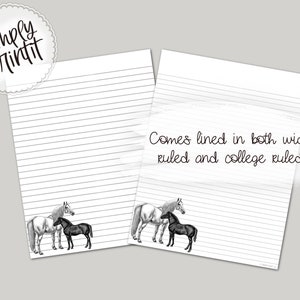 Simply
Printit
Comes lined in both wid
ruled and college ruled